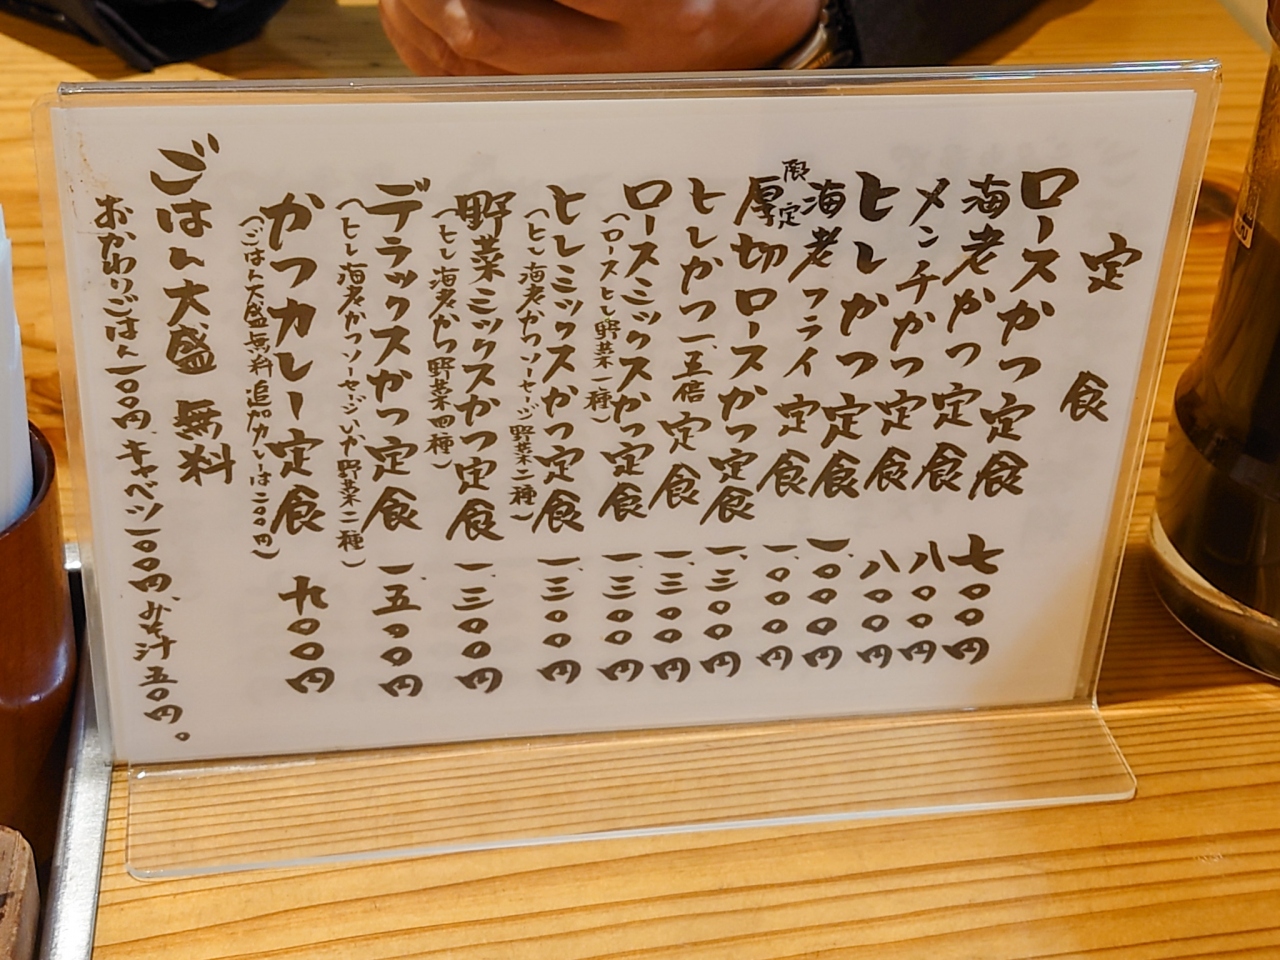 定食
ロースかつ定食 七〇〇円
海老かつ定食 八〇〇円
メンチかつ定食 八〇〇円
ヒレかつ定食 一、〇〇〇円
海老フライ定食 一、〇〇〇円
限定
厚切ロースかつ定食 一、三〇〇円
ヒレかつ一、五倍定食 一、三〇〇円
ロースミックスかつ定食 一、三〇〇円
(ロースヒレ野菜一種)
ヒレミックスかつ定食 一、三〇〇円
(ヒレ海老かつソーセージ野菜二種)
野菜ミックスかつ定食 一、三〇〇円
(ヒレ海老かつ野菜四種)
デラックスかつ定食 一、五〇〇円
(ヒレ海老かつソーセージいか野菜二種)
かつカレー定食 九〇〇円
(ごはん大盛無料追加カレーは二〇〇円)
ごはん大盛無料
おかわりごはん一〇〇円、キャベツ一〇〇円、みそ汁五〇円。